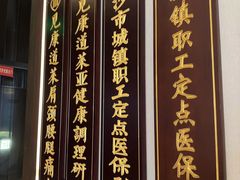 见康道莱肩颈腰腿痛
见康道莱亚健康調理研
沙市城镇职工定点医保
镇职工定点医保